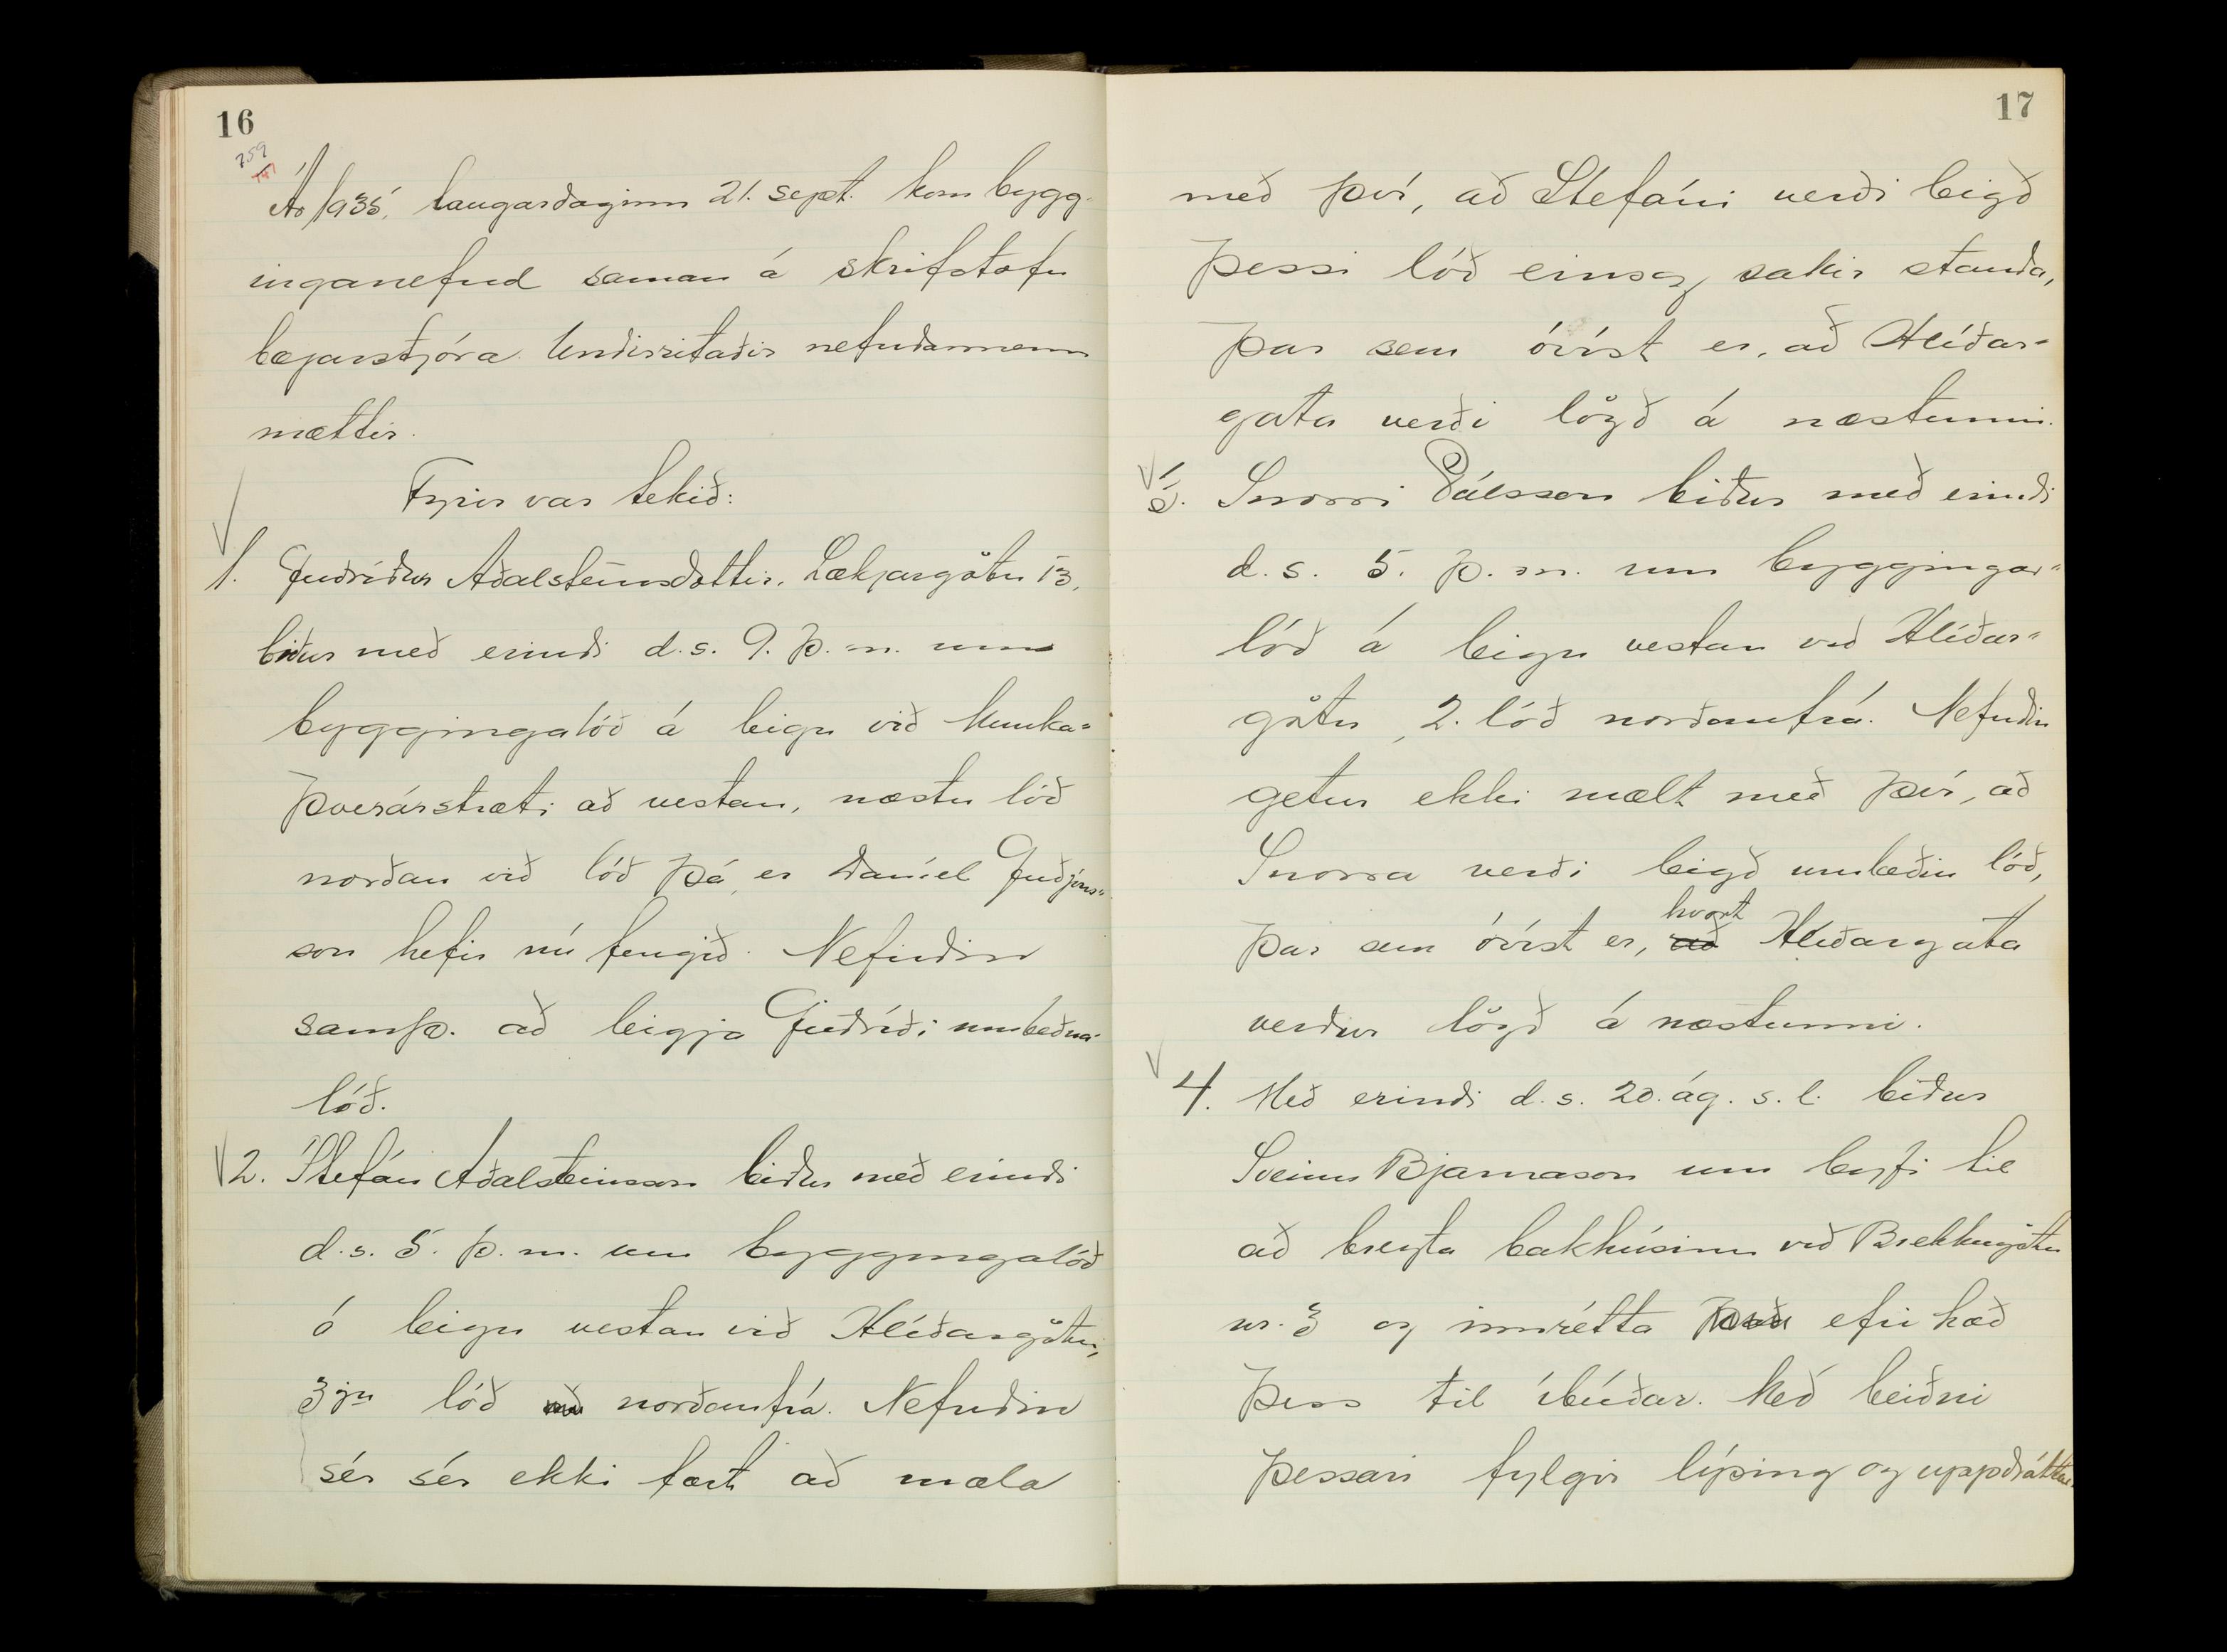 16
759
Ár 1935, laugardaginn 21. sept. kom bygg-
inganefnd saman á skrifstofu
bæjarstjóra. Undirritaðir nefndarmenn
mættir.
Fyrir var tekið:
1. Guðríður Aðalsteinsdóttir, Lækjargötu 13,
biður með erindi d.s. 9. þ.m. um
byggingalóð á leigu við Munka=
þverárstræti að vestan, næstu lóð
norðan við lóð þá, er Daníel Guðjóns=
son hefir nú fengið. Nefndin
samþ. að leigja Guðríði umbeðna
lóð.
2. Stefán Aðalsteinsson biður með erindi
d.s. 5. þ.m. um byggingalóð
á leigu vestan við Hlíðargötu,
3ju lóð norðanfrá. Nefndin
sér sér ekki fært að mæla
17
með því, að Stefáni verði leigð
þessi lóð eins og sakir standa,
þar sem óvíst er, að Hlíðar=
gata verði lögð á næstunni.
3. Snorri Pálsson biður með erindi
d.s. 5. þ.m. um byggingar=
lóð á leigu vestan við Hlíðar=
götu, 2. lóð norðanfrá. Nefndin
getur ekki mælt með því, að
Snorra verði leigð umbeðin lóð,
hvort
þar sem óvíst er, að Hlíðargata
verður lögð á næstunni.
4. Með erindi d.s. 20. ág. s.l. biður
Sveinn Bjarnason um leyfi til
að breyta bakhúsinu við Brekkugötu
nr. 3 og innrétta efri hæð
þess til íbúðar. Með beiðni
þessari fylgir lýsing og uppdráttur.